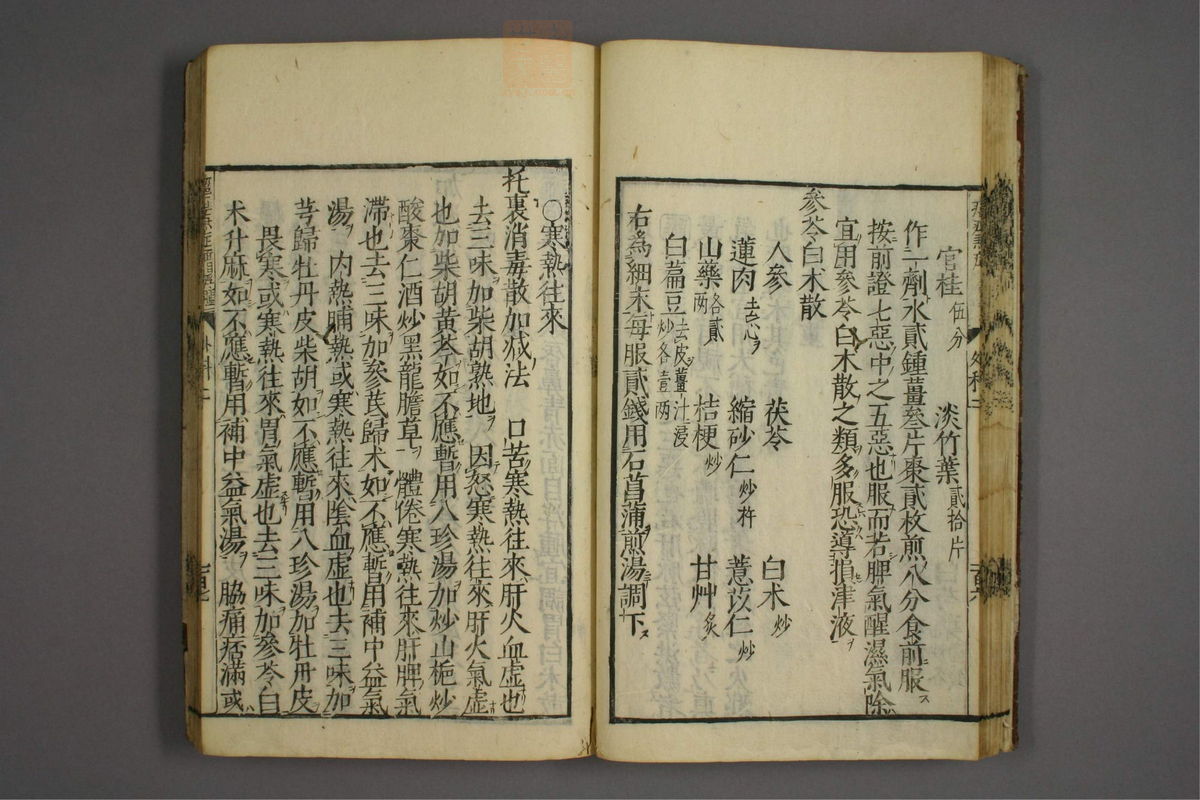 官桂伍分 淡竹葉貳拾片
作一劑水貳鍾薑叄片棗貳枚煎八分食前服ス
按前證七惡中之五惡也服而若脾氣醒濕氣除
宜用參苓白朮散之類多服恐導損津液ヲ
參苓白朮散
人參 茯苓 白朮炒
蓮肉去心ヲ 縮砂仁炒杵 薏苡仁炒
山藥各貳兩 桔梗炒 甘艸炙
白萹豆去皮薑汁浸炒各壹兩
右為細末每服貳錢用石菖蒲煎湯調下ス
○寒熱往來
托裏消毒散加减法 口苦寒熱往來肝火血虛也
去三味加柴胡熟地ヲ 因怒寒熱往來肝火氣虛
也加柴胡黃芩如不應暫用八珍湯加炒山梔炒
酸棗仁酒炒黑龍膽草 體倦寒熱往來肝脾氣
滯也去三味加參芪歸朮如不應暫用補中益氣
湯ヲ 內熱晡熱或寒熱往來陰血虛也去三味加
芎歸牡丹皮柴胡如不應暫用八珍湯加牡丹皮
畏寒或寒熱往來胃氣虛也去三味加參苓白
朮升麻如不應暫用補中益氣湯ヲ 脇痛痞滿或